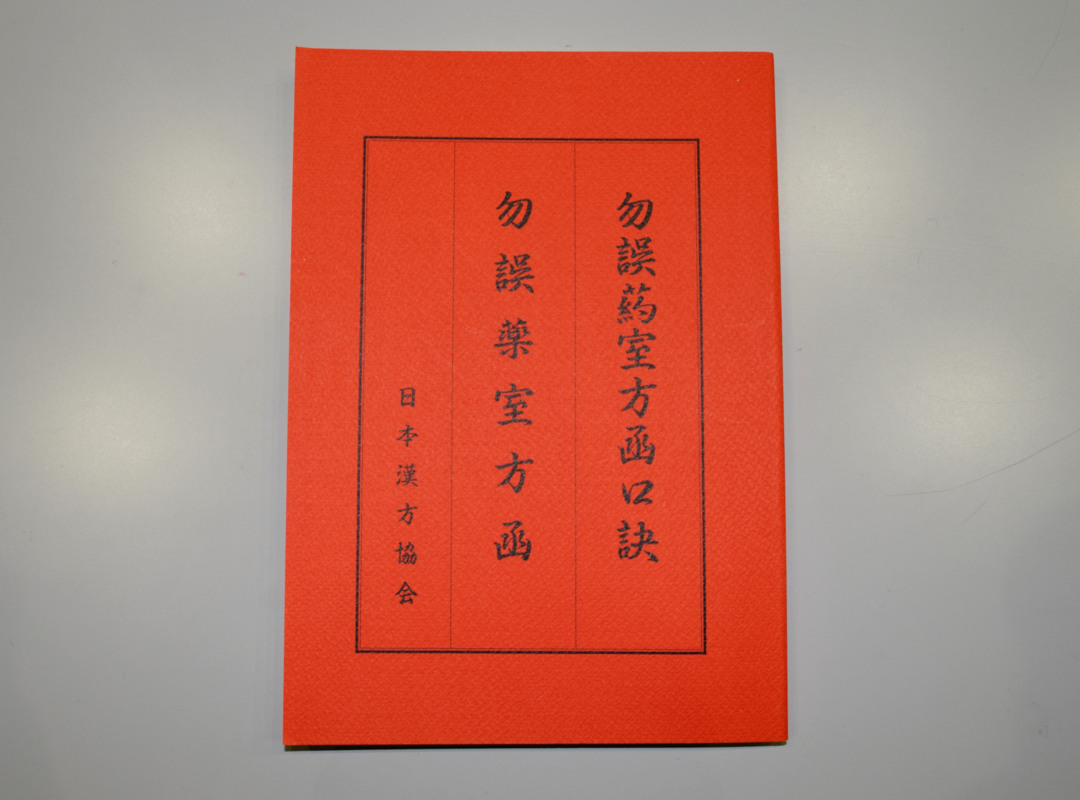 勿誤葯室方函口訣
勿誤薬室方函
日本漢方協会